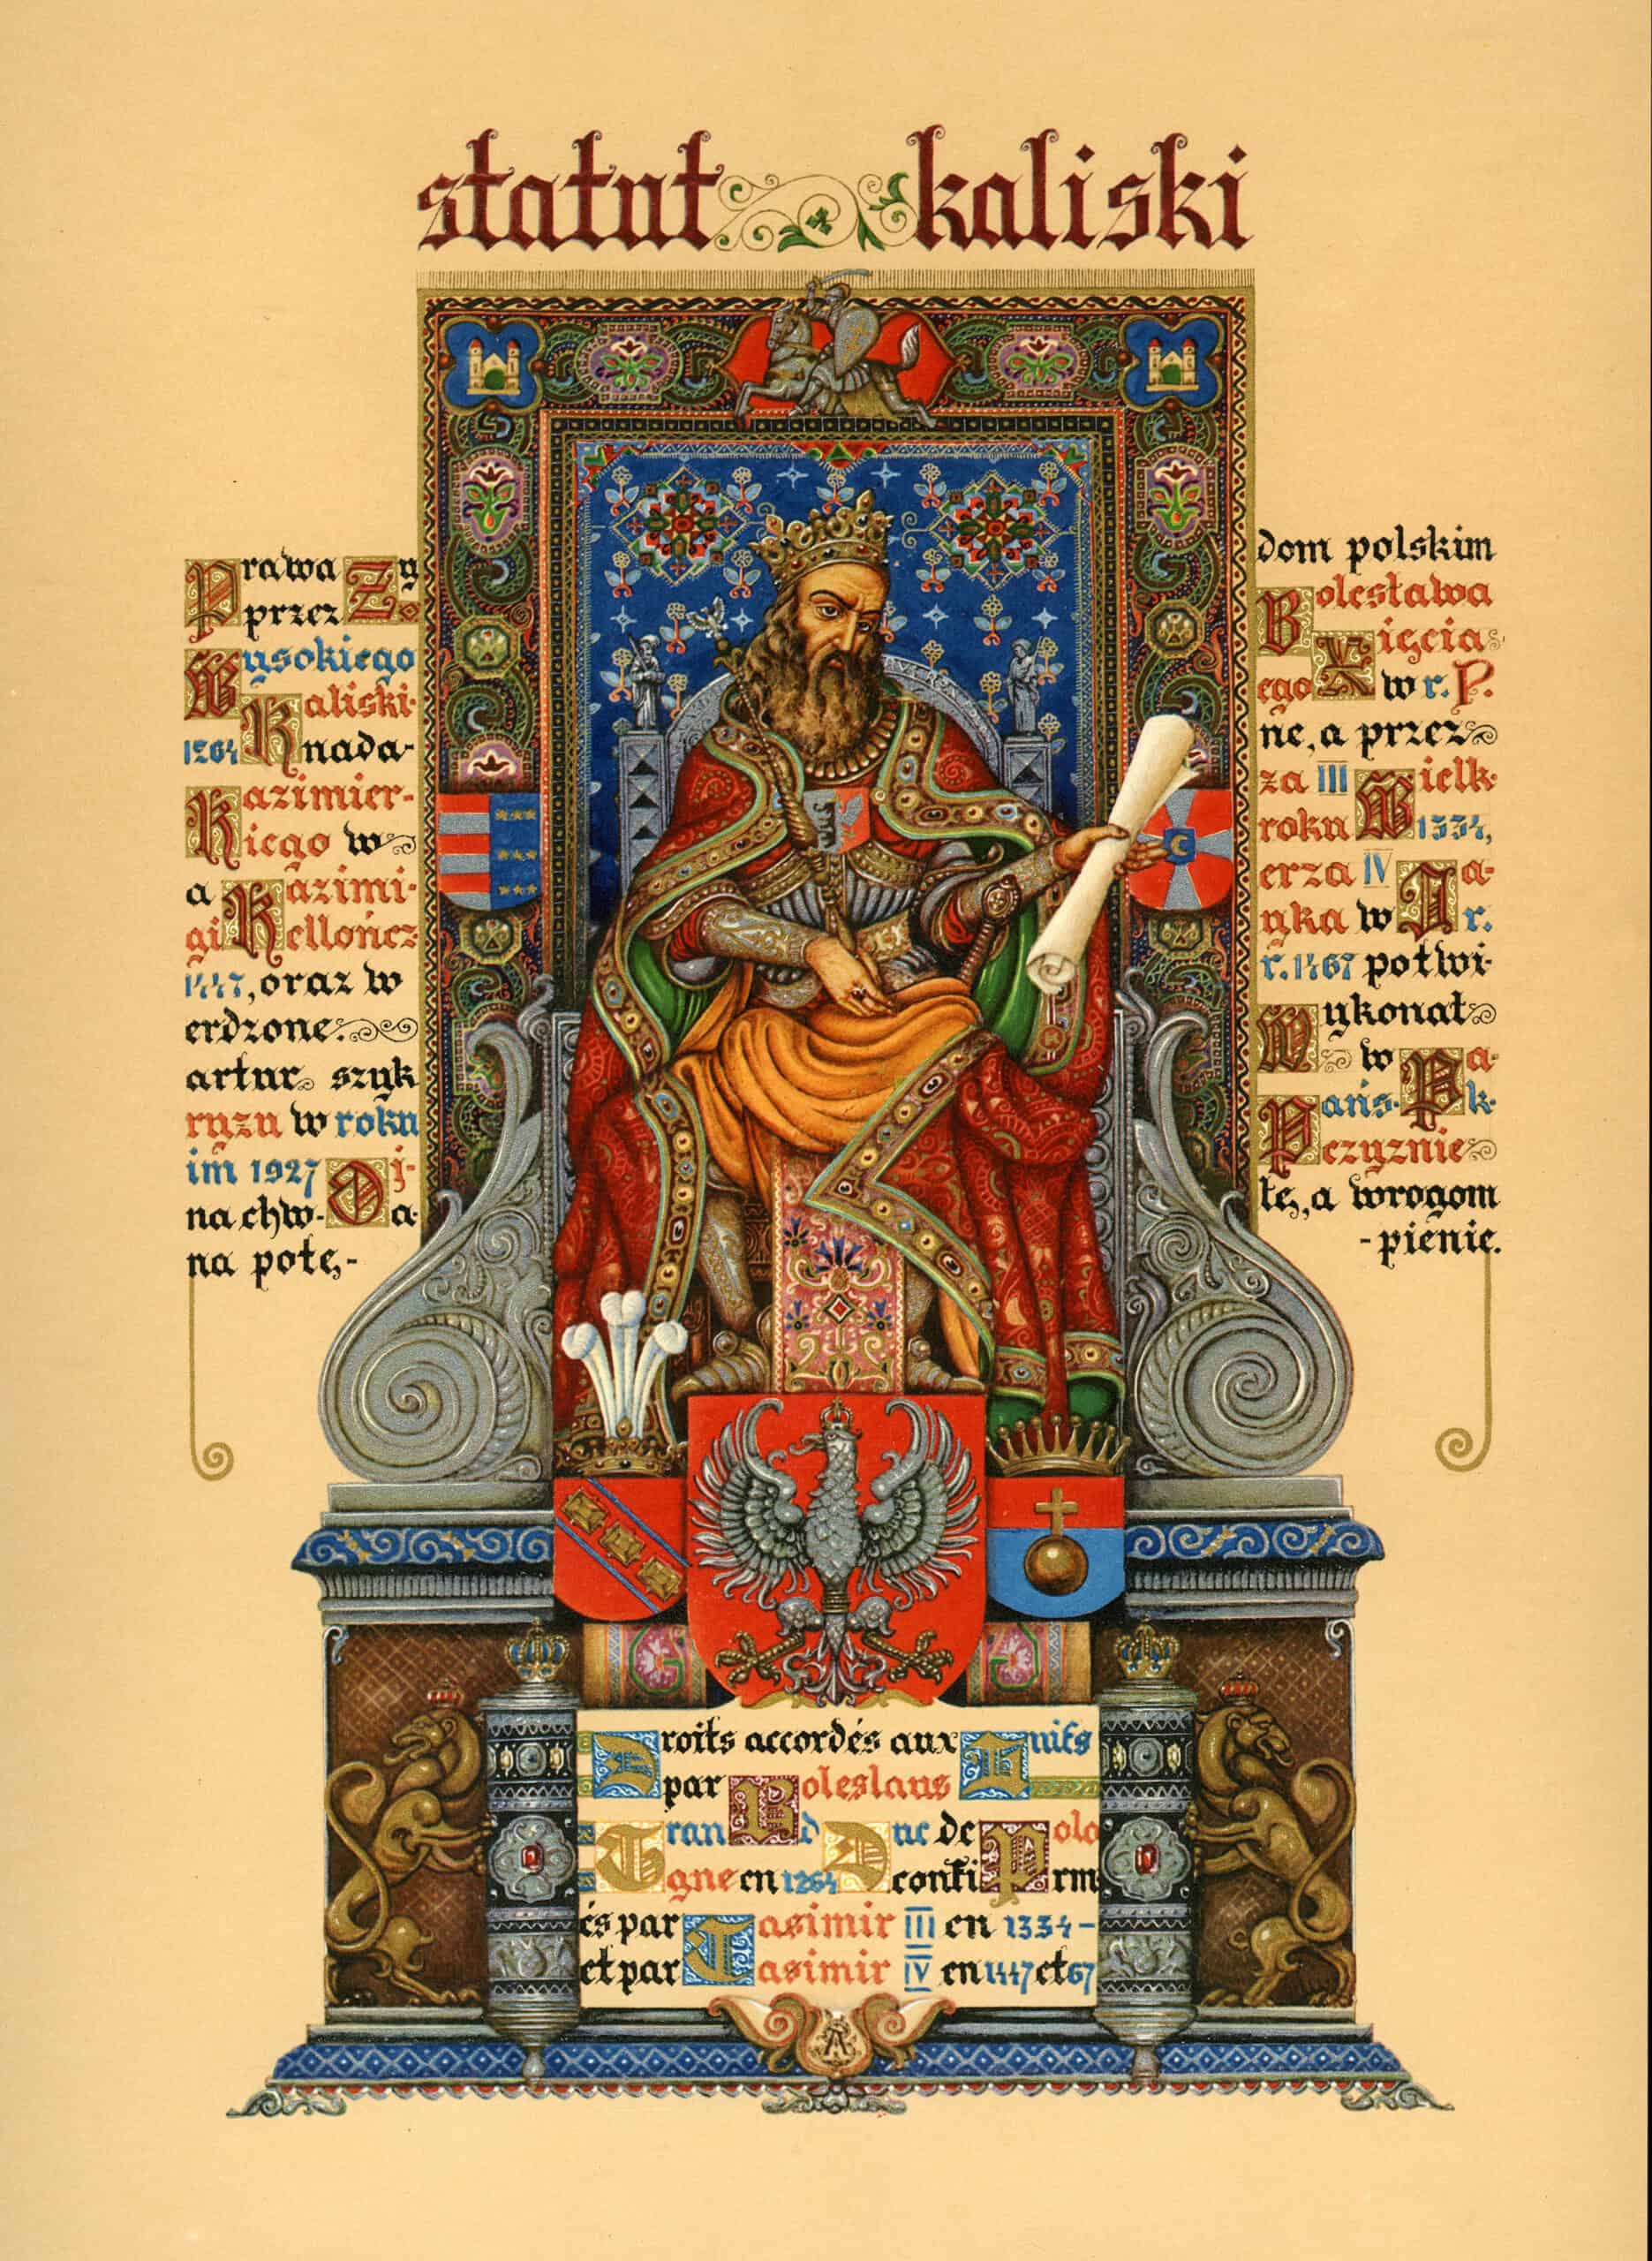 statut kaliski
Prawa Zy dom polskim
przez Bolesława
Wysokiego Xięcia
Kaliski- ego w r. P.
1264 nada- ne, a przez
Kazimier- za III Wielk-
iego w roku 1334,
a Kazimi- erza IV Ja-
giellończ yka w r.
1447, oraz w r. 1467 potwi-
erdzone. Wykonał
artur szyk w Pa-
ryzu w roku Pańsk-
im 1927 Oj- czyznie
na chwa- łę, a wrogom
na potę,- -pienie.
Droits accordés aux Juifs
par Boleslaus
Grand Duc de Polo
gne en 1264 confirm
és par Casimir III en 1334-
et par Casimir IV en 1447 et 67